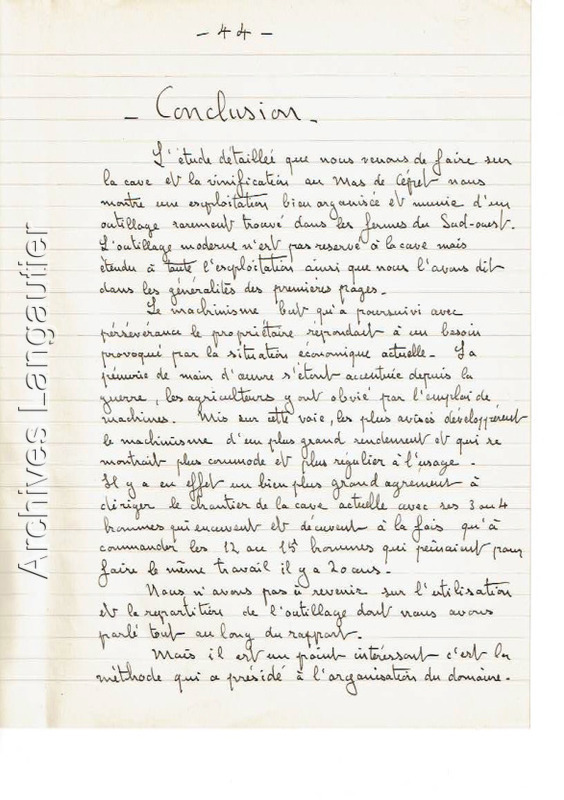 - 44 -
- Conclusion -
L'étude détaillée que nous venons de faire sur
la cave et la vinification au Mas de Céfet nous
montre une exploitation bien organisée et munie d'un
outillage rarement trouvé dans les fermes du Sud-ouest.
L'outillage moderne n'est pas reservé à la cave mais
étendu à toute l'exploitation ainsi que nous l'avons dit
dans les généralités des premieres pages.
Le machinisme but qu'a poursuivi avec
pérsévérance le propriétaire repondait à un besoin
provoqué par la situation économique actuelle. La
pénurie de main d'œuvre s'étant accentuée depuis la
guerre, les agriculteurs y ont obvié par l'emploi de
machines. Mis sur cette voie, les plus avisés développèrent
le machinisme d'un plus grand rendement et qui se
montrait plus commode et plus régulier à l'usage.
Il y a en effet un bien plus grand agrement à
diriger le chantier de la cave actuelle avec ses 3 ou 4
hommes qui encuvent et décuvent à la fois qu'à
commander les 12 au 15 hommes qui peinaient pour
faire le même travail il y a 20 ans.
Nous n'avons pas à revenir sur l'utilisation
et la repartition de l'outillage dont nous avons
parlé tout au long du rapport.
Mais il est un point intéressant c'est la
méthode qui a présidé à l'organisation du domaine.
Archives Langautier